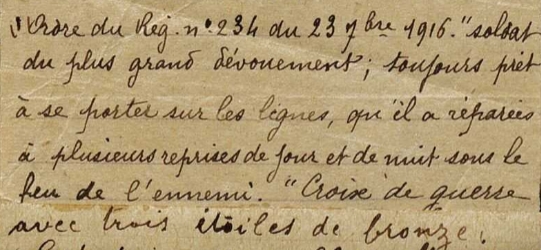 Ordre du Reg. n° 234 du 23 7bre 1916. "soldat
du plus grand dévouement ; toujours prêt
à se porter sur les lignes, qu'il a réparées
à plusieurs reprises de jour et de nuit sous le
feu de l'ennemi. "Croix de guerre
avec trois étoiles de bronze.